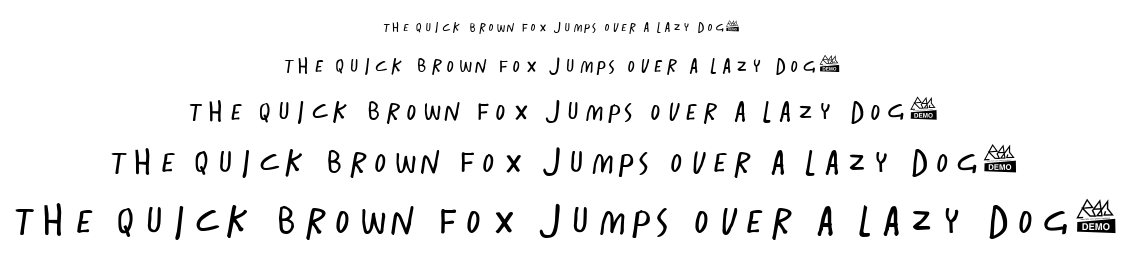 THE QUICK BROWN FOX JUMPS OVER A LAZY DOG DEMO
THE QUICK BROWN FOX JUMPS OVER A LAZY DOG DEMO
THE QUICK BROWN FOX JUMPS OVER A LAZY DOG DEMO
THE QUICK BROWN FOX JUMPS OVER A LAZY DOG DEMO
THE QUICK BROWN FOX JUMPS OVER A LAZY DOG DEMO